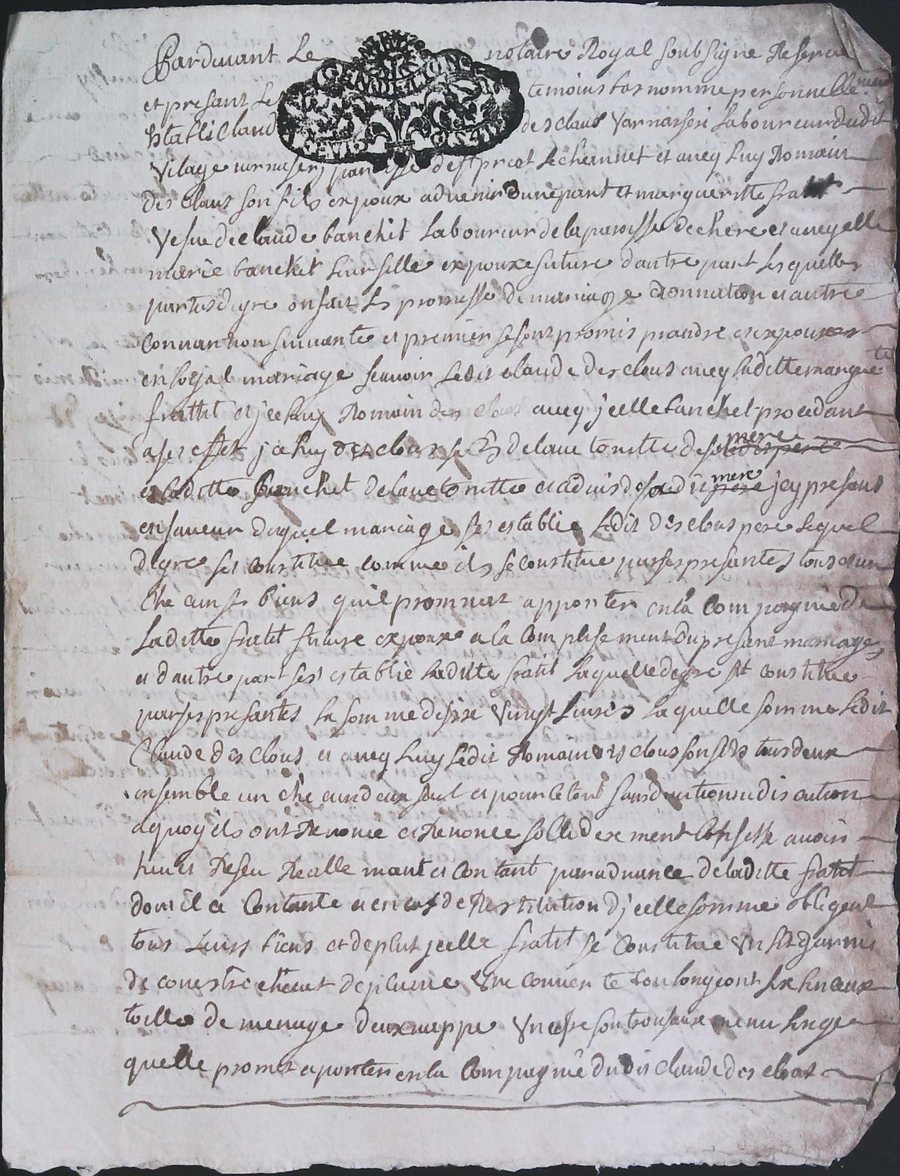 Pardevant Le notaire Royal soubsigne Reserve
et presant Les temoins bas nomme personnellement
Establi Claud des claus varnasseri Labourcur dudit
Vilage varnasserj parroisse de st priot Lechennet et aveq Luy Romain
des claus son fils expoux advenir dune part et margueritte fratit
Vefue de claude banchet Laboureur de la paroisse de chere et aveq elle
marie banchet Leur fille expouxe future d'autre part Lesquelles
parties de gre on fait Les promesse de mariage donnation et autre
convantion suivante et premier se sont promis prandre et expouxer
en Loyal mariage scavoir Ledit claude des clous aveq Laditte marguerite
fratit et jceluy Romain des clous aveq jcelle banchet procedant
a ses effet jceluy des clous fils de lautoritte de mere
et laditte banchet de lautoritte et advis de sadie mere jcy presant
en faveur duquel mariage ses establie Ledit des clous pere Lequel
de gre ses constitue comme il se constitue par ses presantes tous
che ainses biens quil promnet apporter en la Compagnie de
Laditte fratit future expouxe a la Complisement du presant mariage
et d'autre part ses establie Laditte fratit Laquelle de gre st constitue
par ses presantes La somme de six vingt Livres Laquelle somme Ledit
Claude des clous et aveq Luy Ledit Romain des clous son fils tous deux
ensemble un che aun deux seul et pour le tout sans division ni discution
a quoy ils ont Renonce et Renonce sollideremant Confesse avoir
heu et Reseu Reallemant et Contant par advance de laditte fratit
dont il a Contante et en cas de Restitution d'jcelle somme obligent
tous Leurs biens et de plus jcelle fratit se Constitue Un lit garnis
de couestre chevet de plume Une couverte
toille de menage deux nappe Un coffre son trousaux menu linge
quelle promet aporter en la Compagnie dudit claude des clous